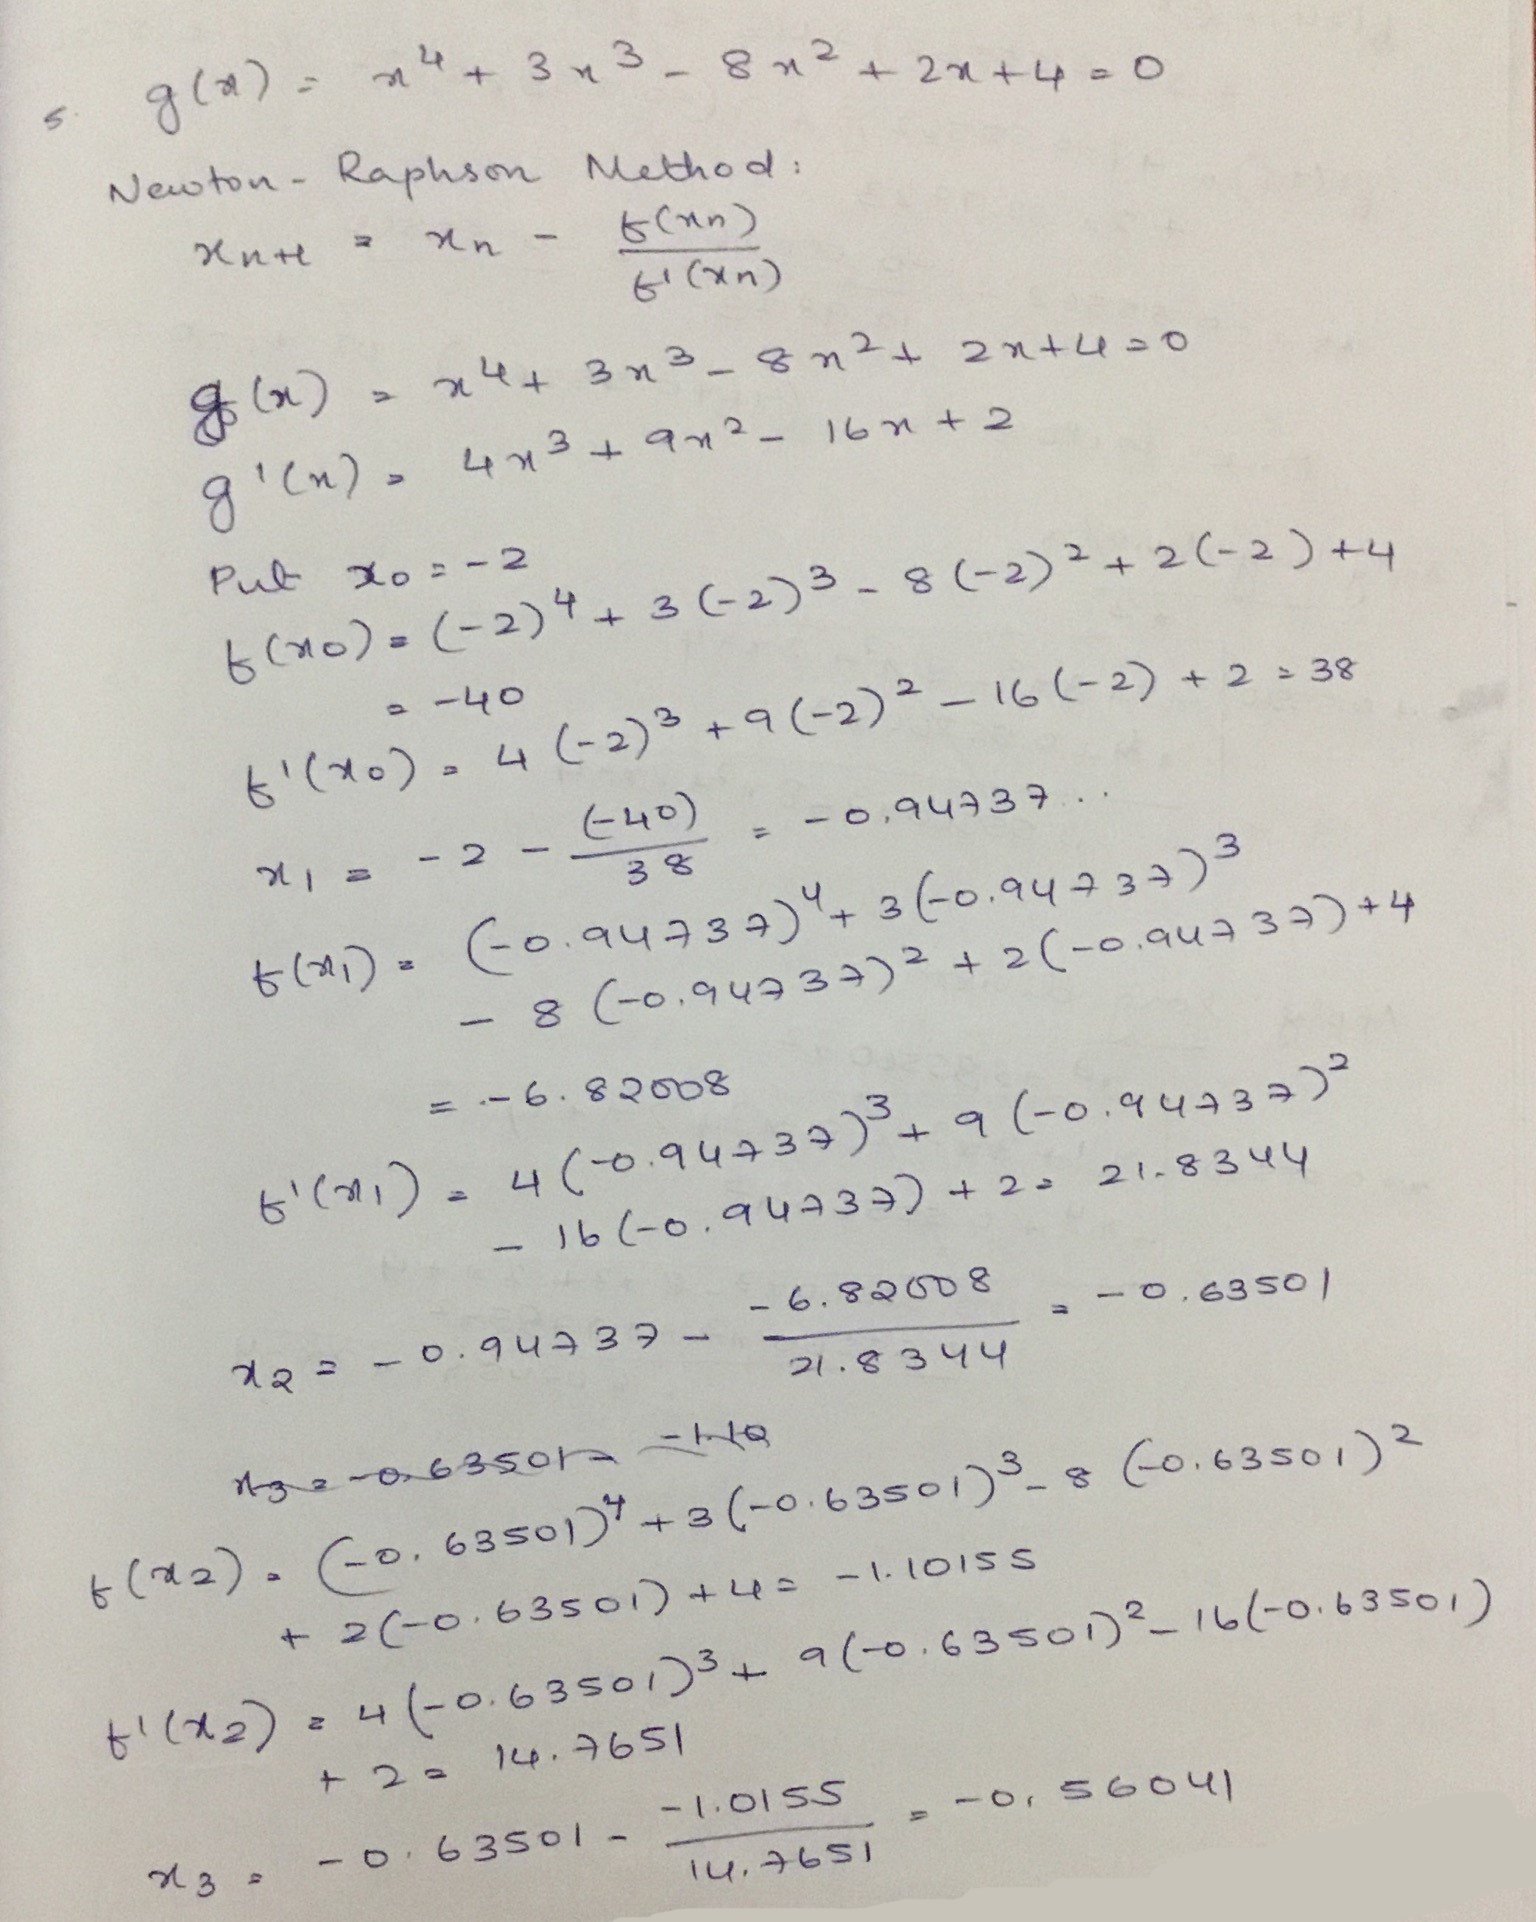 5. g(x) = x⁴ + 3x³ - 8x² + 2x + 4 = 0
Newton - Raphson Method:
xn+1 = xn - f(xn) / f'(xn)
g(x) = x⁴ + 3x³ - 8x² + 2x + 4 = 0
g'(x) = 4x³ + 9x² - 16x + 2
Put x0 = -2
f(x0) = (-2)⁴ + 3(-2)³ - 8(-2)² + 2(-2) + 4
= -40
f'(x0) = 4(-2)³ + 9(-2)² - 16(-2) + 2 = 38
x1 = -2 - (-40) / 38 = -0.94737..
f(x1) = (-0.94737)⁴ + 3(-0.94737)³
- 8(-0.94737)² + 2(-0.94737) + 4
= -6.82008
f'(x1) = 4(-0.94737)³ + 9(-0.94737)²
- 16(-0.94737) + 2 = 21.8344
x2 = -0.94737 - -6.82008 / 21.8344 = -0.63501
x3 = -0.63501 - -1.10
f(x2) = (-0.63501)⁴ + 3(-0.63501)³ - 8(-0.63501)²
+ 2(-0.63501) + 4 = -1.10155
f'(x2) = 4(-0.63501)³ + 9(-0.63501)² - 16(-0.63501)
+ 2 = 14.7651
x3 = -0.63501 - -1.0155 / 14.7651 = -0.56041